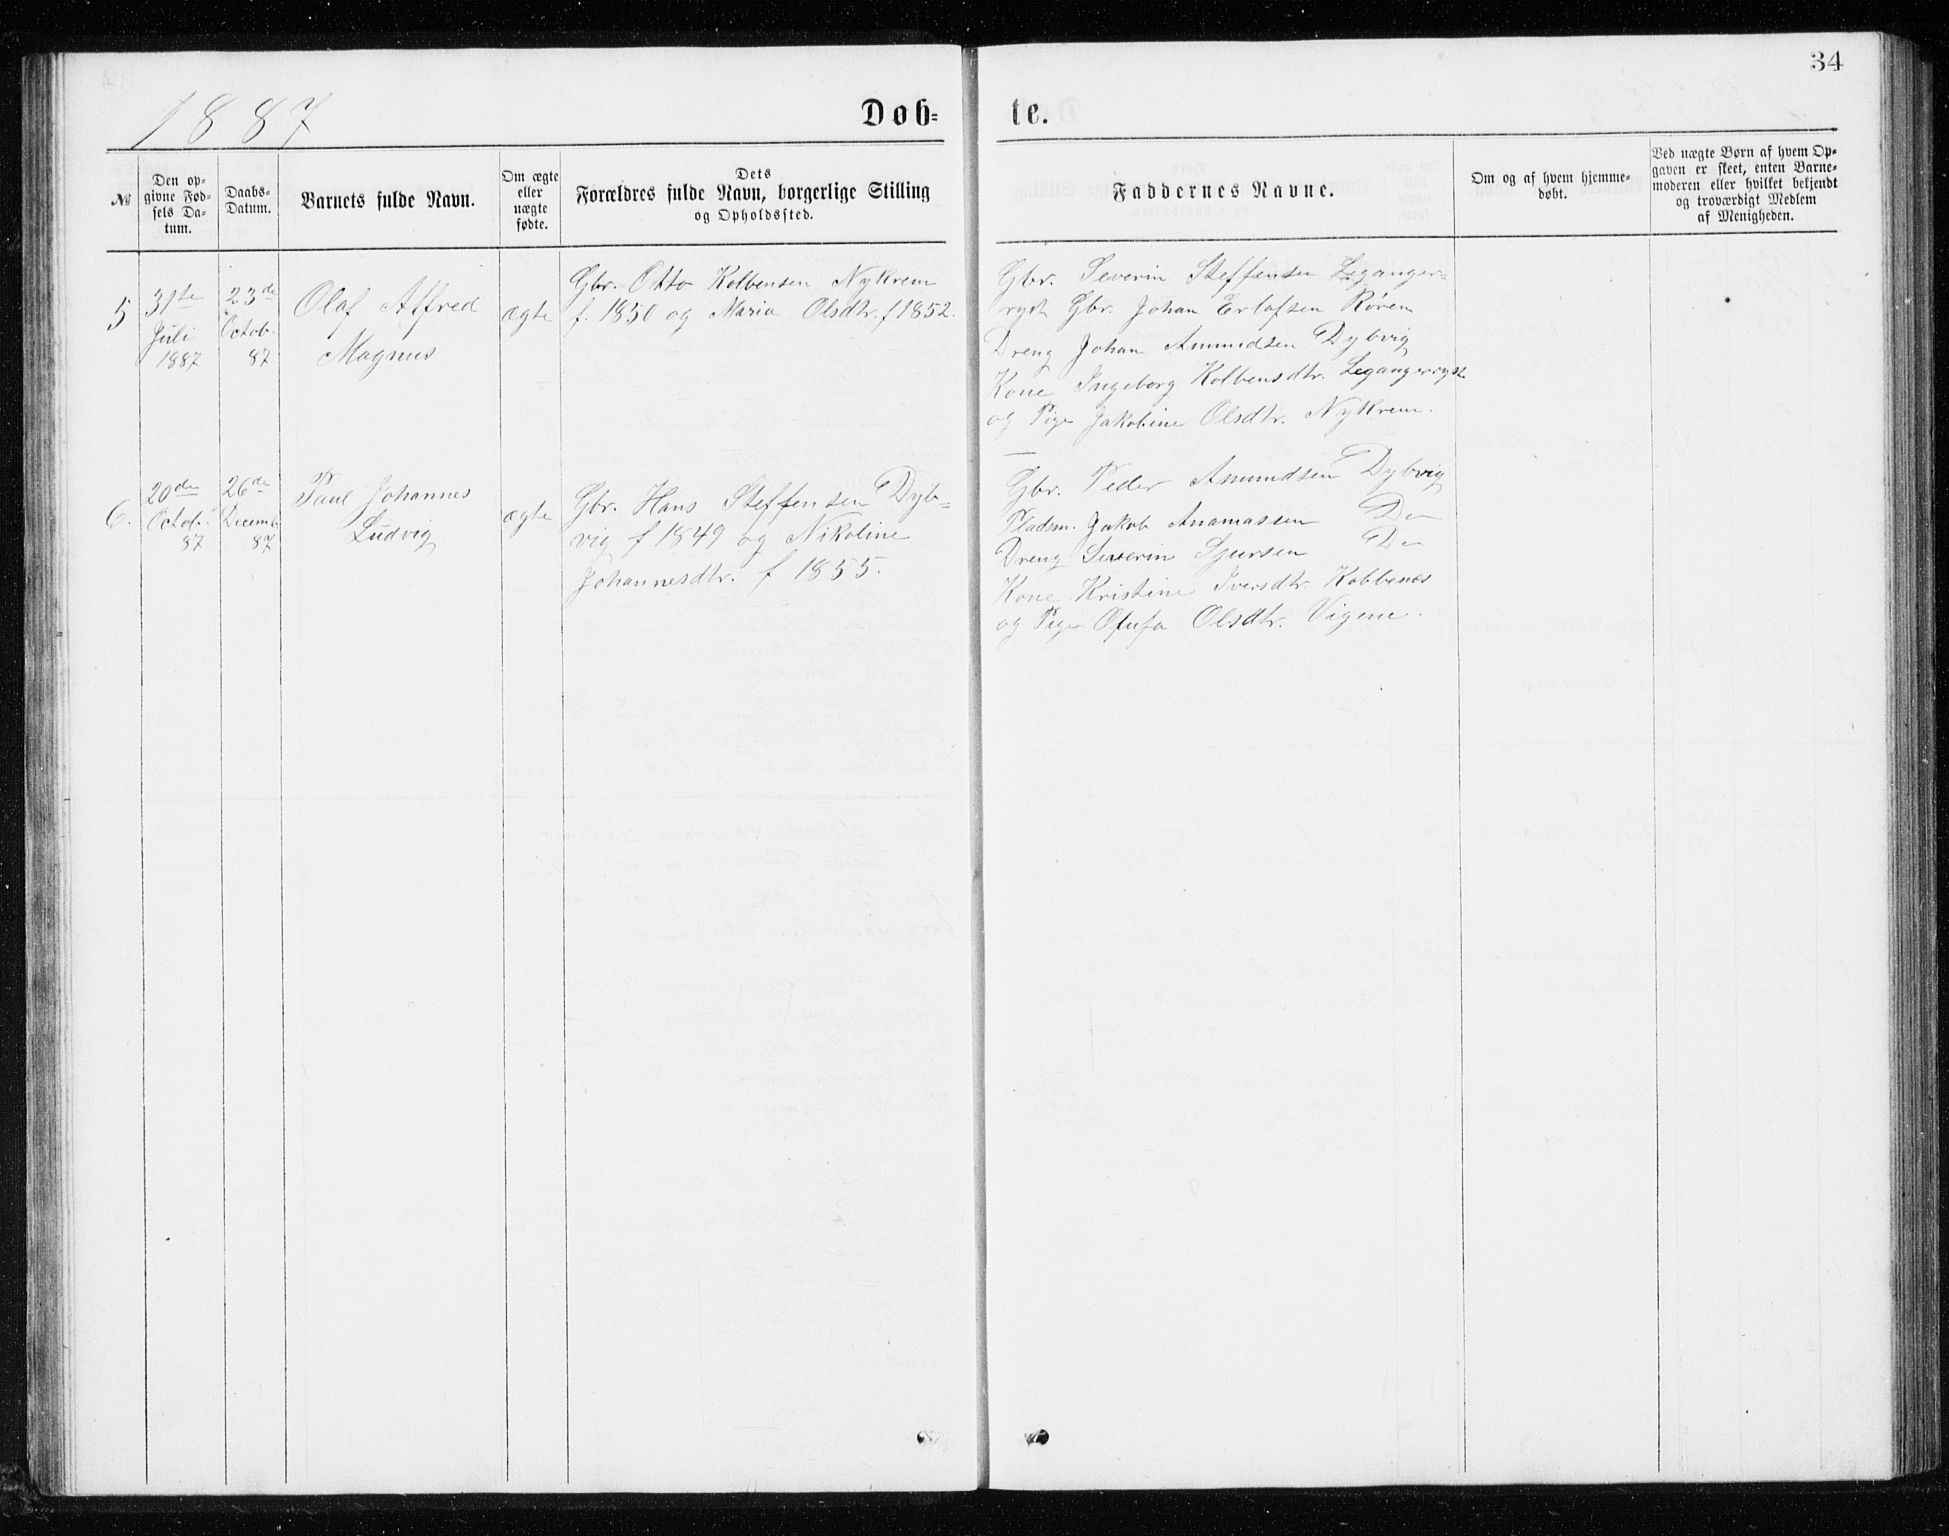 34
1887
Døb-
te.
№
Den op-
givne Fød-
sels Da-
tum.
Daabs-
Datum.
Barnets fulde Navn.
Om ægte
eller
uægte
fødte.
Dets
Forældres fulde Navn, borgerlige Stilling
og Opholdssted.
Faddernes Navne.
Om og af hvem hjemme-
døbt.
Ved uægte Børn af hvem Op-
gaven er skeet, enten Barne-
moderen eller hvilket bekjendt
og troværdigt Medlem
af Menigheden.
5
31te
Juli
1887
23de
Octob.
87
Olaf Alfred
Magnus
ægte
Gbr. Otto Kolbensen Nykrem
f. 1850 og Maria Olsdtr. f 1852.
Gbr. Severin Steffensen Leganger-
ryst Gbr. Johan Erlafsen Røren
Dreng Johan Amundsen Dybvig
Kone Ingeborg Kolbensdtr. Legangerryst
og Pige Jakobine Olsdtr. Nykrem.
6.
20de
Octob.
87
26de
Decemb.
87
Paul Johannes
Ludvig
ægte
Gbr. Hans Steffensen Dyb-
vig f 1849 og Nikoline
Johannesdtr. f 1855.
Gbr. Peder Amundsen Dybvig
Pladsm. Jakob Anamassen Do
Dreng Severin Sjursen Do
Kone Kristine Iversdtr. Kobbenes
og Pige Olufa Olsdtr. Vigene.